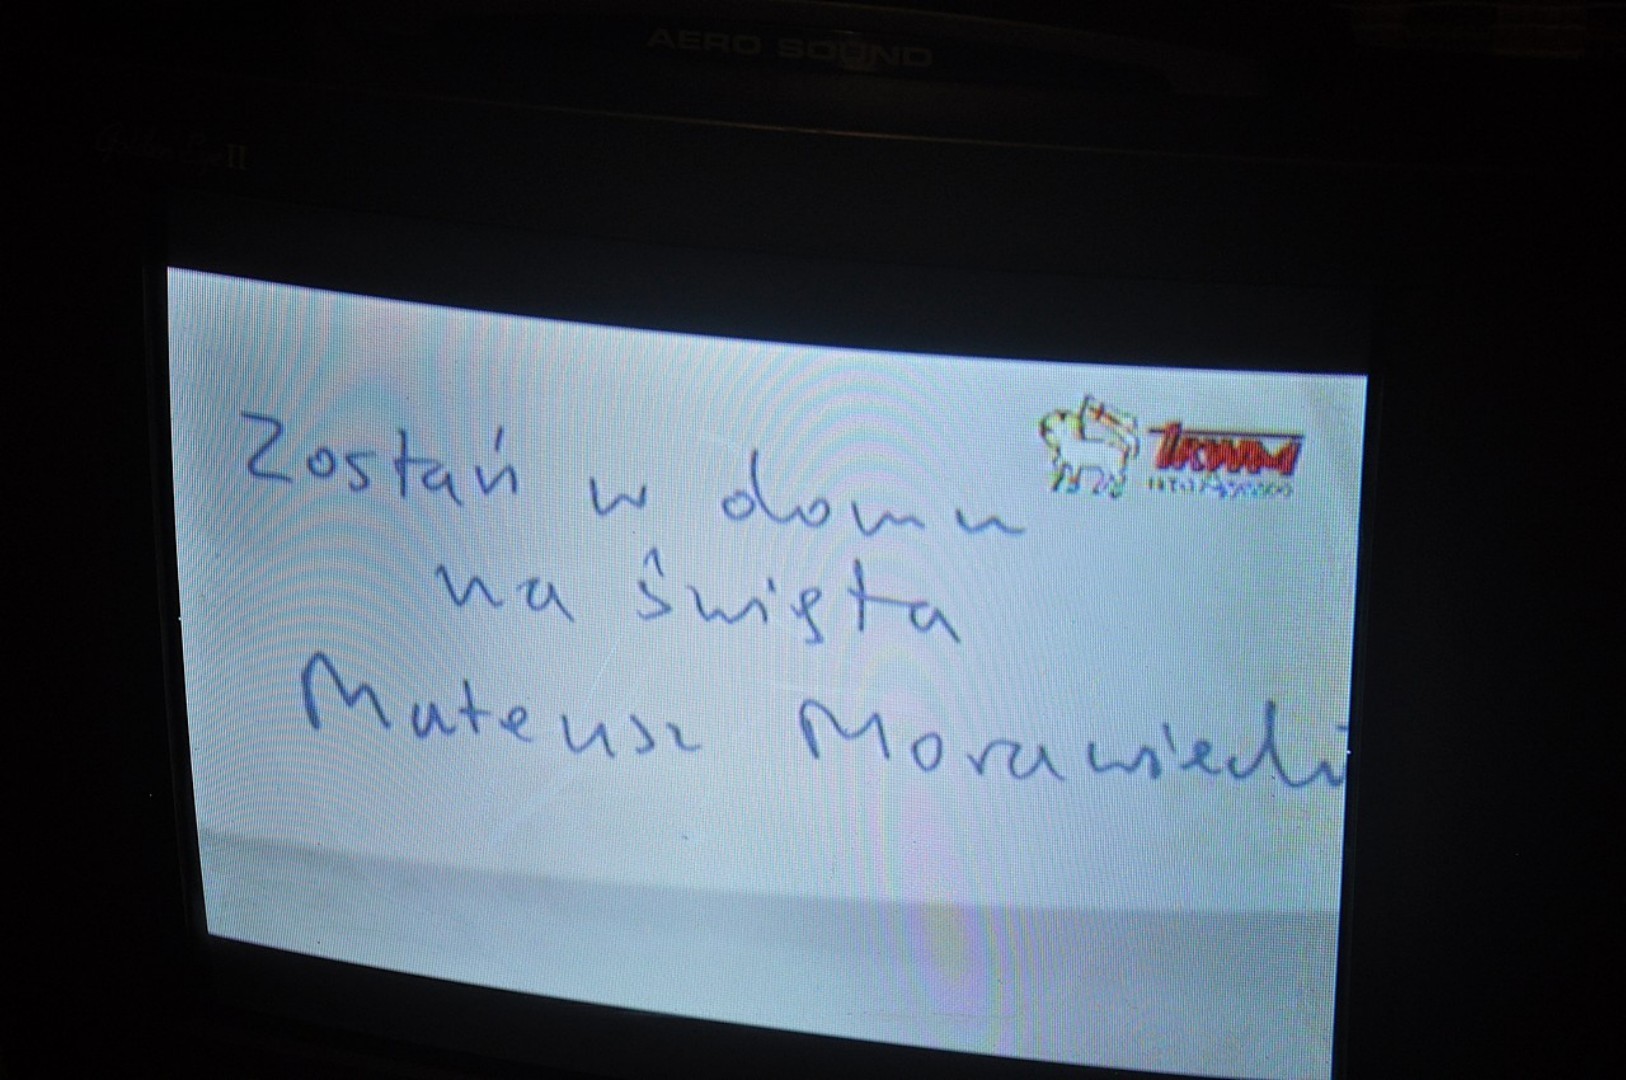 AERO SOUND
II
Zostań w domu
TRWAM
na święta
Mateusz Morawiecki